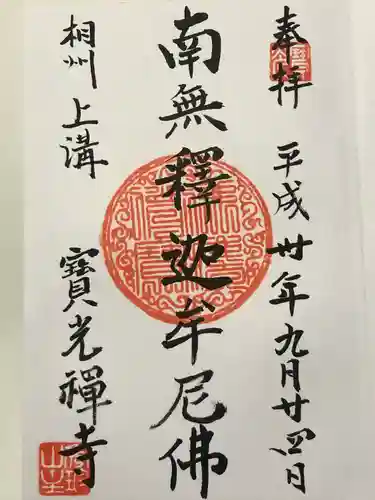 奉拝　平成卅年九月廿四日
南無釋迦牟尼佛
相州上溝　寶光禪寺